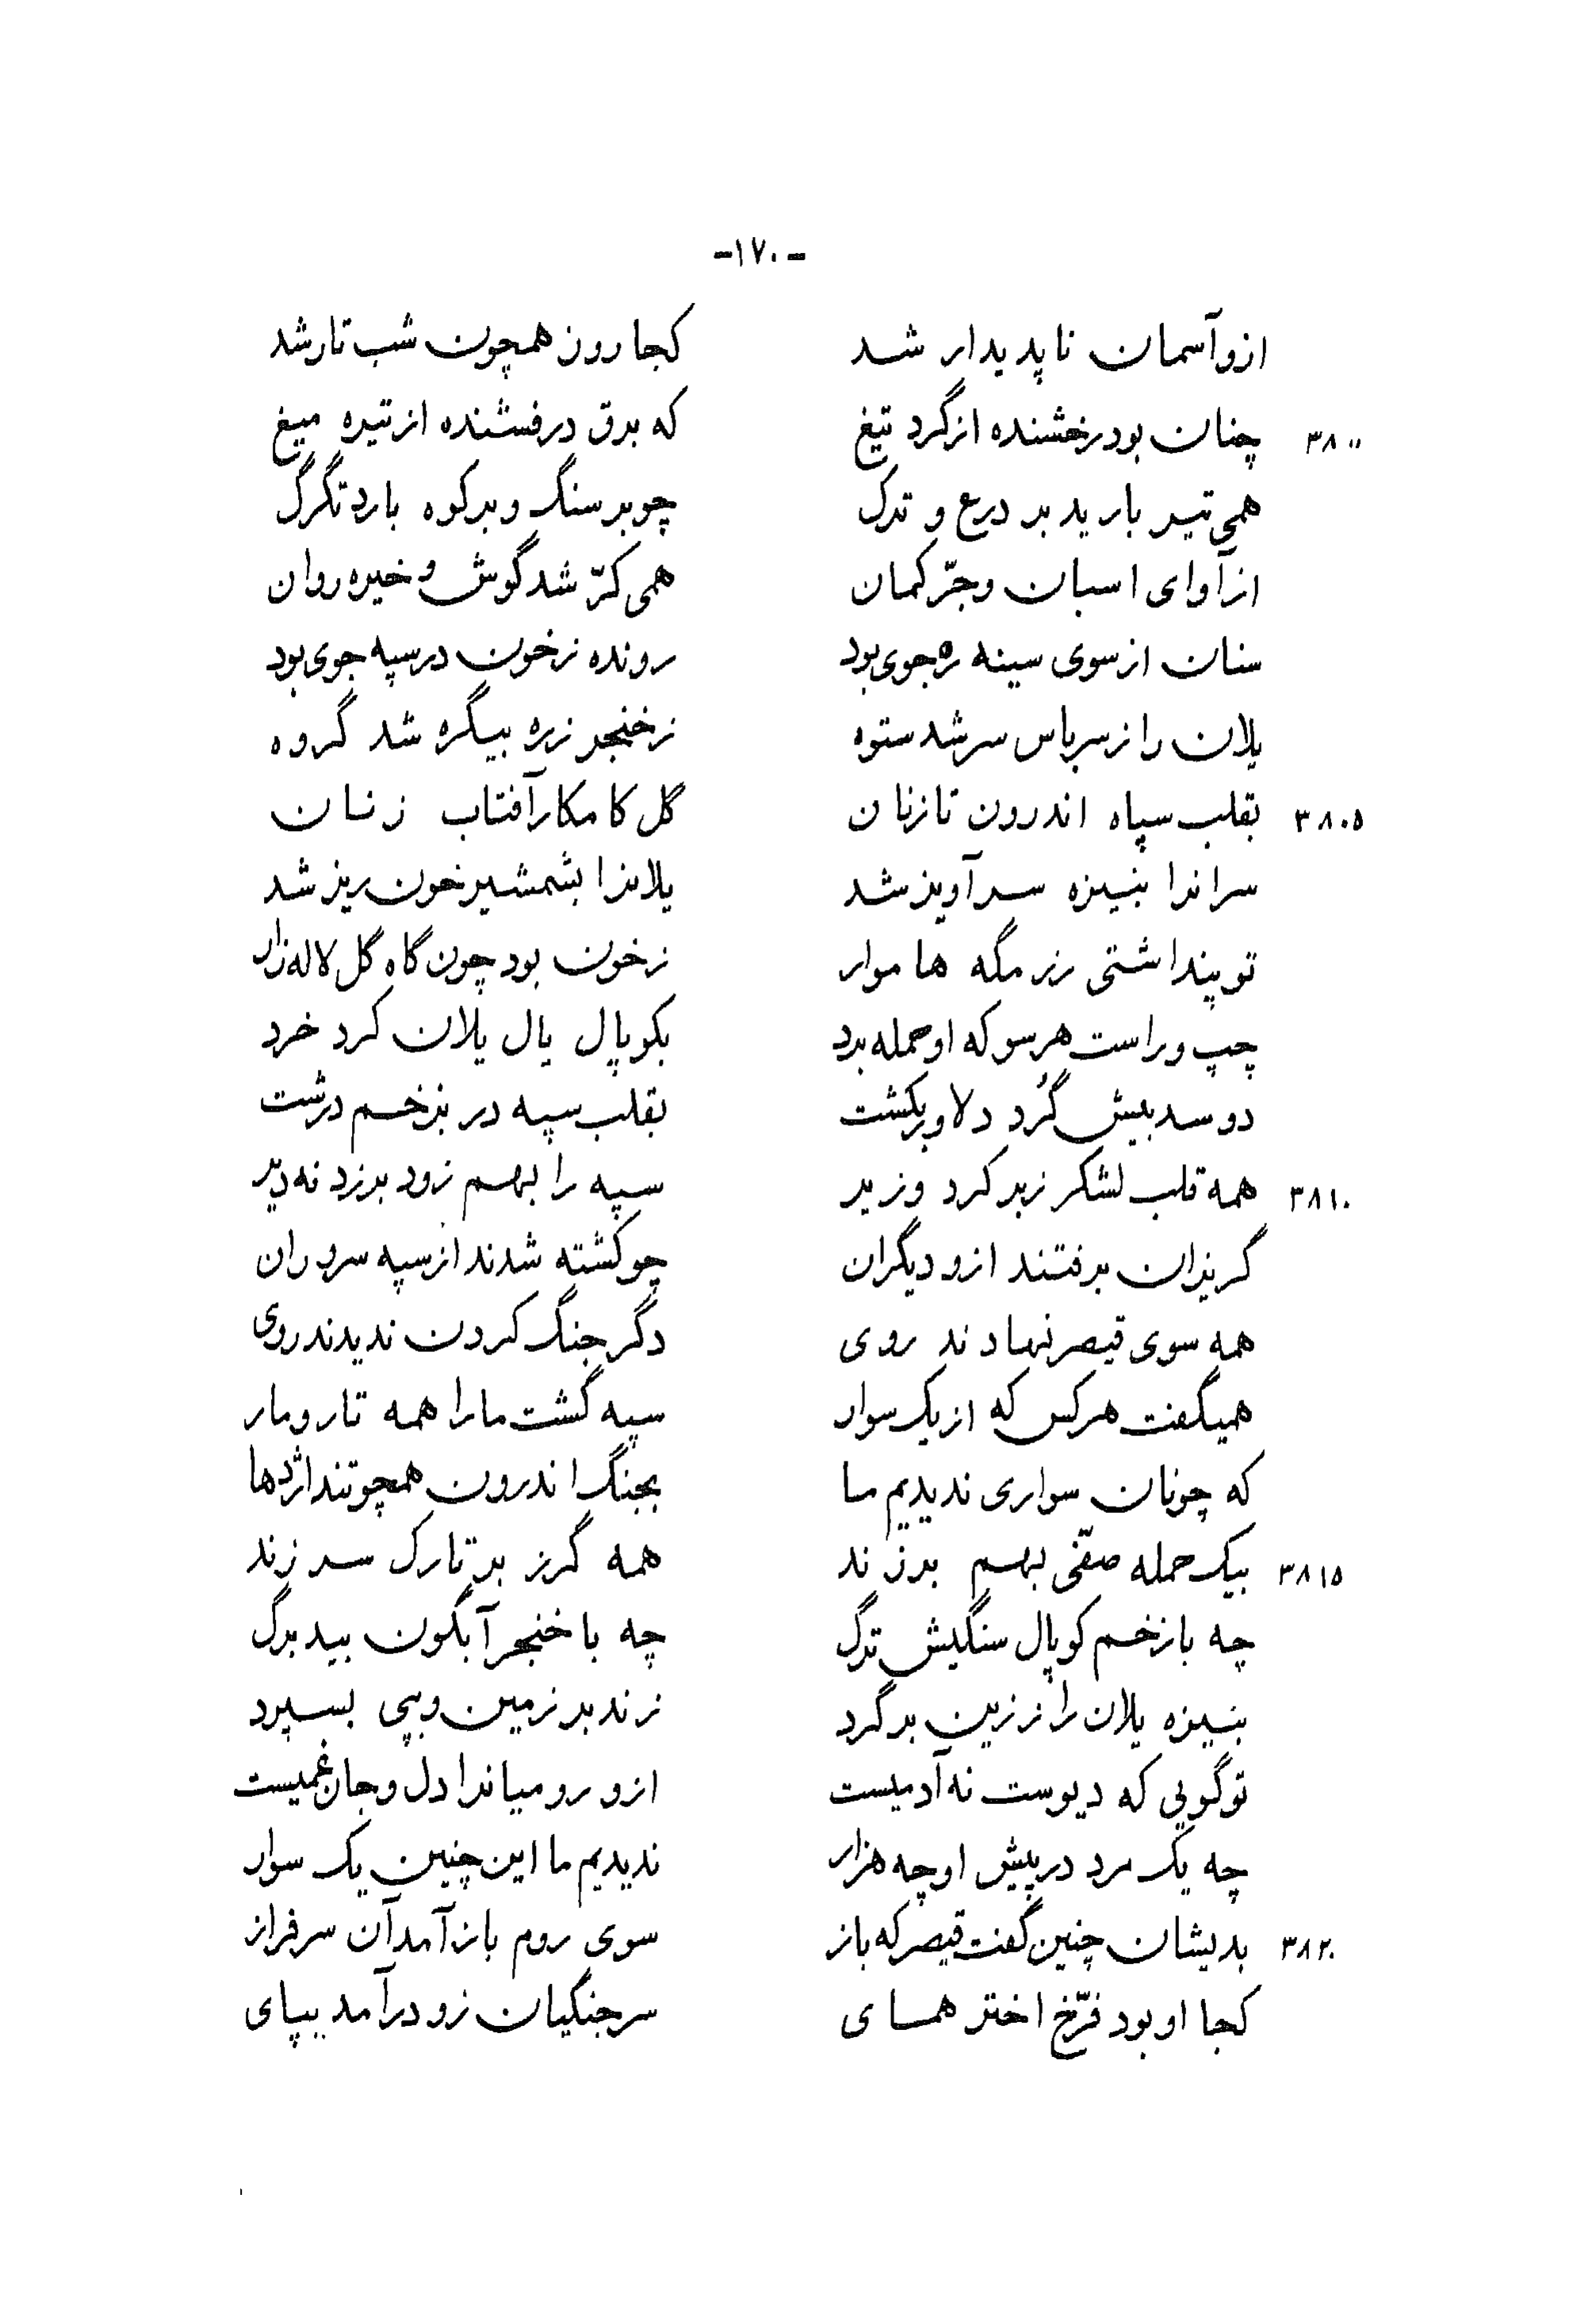 -۱۷۰-
ازو آسمان ناپدیدار شد کجا روز همچون شب تار شد
۳۸۰۰ چنان بود رخشنده از گرد تیغ که برق درفشنده از تیره میغ
همی تیر بارید بر درع و ترک چو بر سنگ و بر کوه بارد تگرگ
از آوای اسبان و جرّ کمان همی کرّ شد گوش و خیره روان
سنان از سوی سینه ره جوی بود رونده ز خون در سپه جوی بود
یلان را ز سرپاس سر شد ستوه ز خنجر زره بیگره شد گروه
۳۸۰۵ بقلب سپاه اندرون تازنان گل کامکار آفتاب زنان
سرانرا بنیزه سرآویز شد یلانرا بشمشیر خون ریز شد
تو پنداشتی رزمگه هاموار ز خون بود چون گاه گل لاله زار
چپ و راست هر سو که او حمله برد بکوپال یال یلان کرد خرد
دو سد بیش گُرد دلاور بکشت بقلب سپه در بزخم درشت
۳۸۱۰ همه قلب لشکر زبر کرد و زیر سپه را بهم زود برزد نه دیر
گریزان برفتند ازو دیگران چو کشته شدند از سپه سروران
همه سوی قیصر نهادند روی دگر جنگ کردن ندیدند روی
همیگفت هر کس که از یک سوار سپه گشت ما را همه تار و مار
که چونان سواری ندیدیم ما بجنگ اندرون همچو تند اژدها
۳۸۱۵ بیک حمله صفّی بهم برزند همه گرز بر تارک سر زند
چه با زخم کوپال سنگیش ترگ چه با خنجر آبگون بید برگ
بنیزه یلان را ز زین برگرد زند بر زمین و بپی بسپرد
تو گویی که دیوست نه آدمیست ازو رومیانرا دل و جان غمیست
چه یک مرد در پیش او چه هزار ندیدیم ما این چنین یک سوار
۳۸۲۰ بدیشان چنین گفت قیصر که باز سوی روم باز آمد آن سرفراز
کجا او بود فرّخ اختر همای سر جنگیان زو درآمد بپای